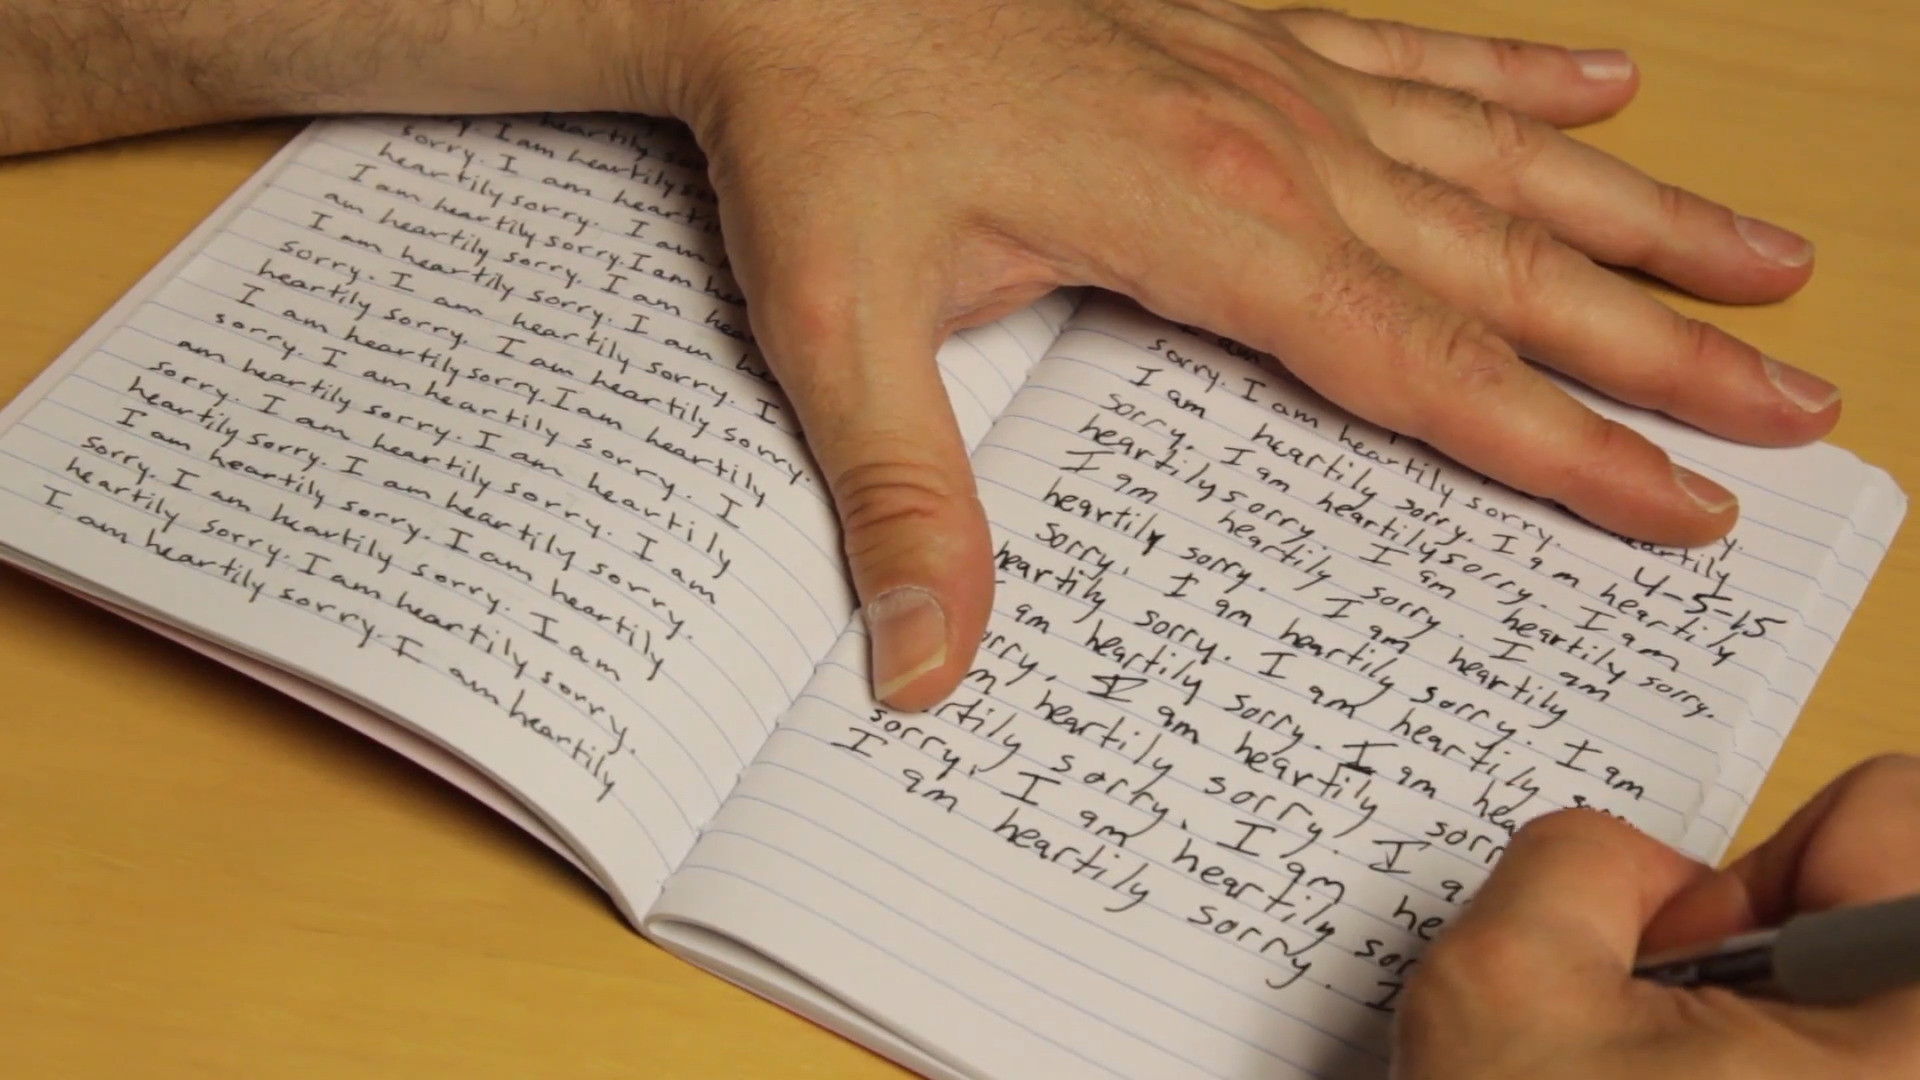 heartily
I am heartily
sorry. I am
heartily sorry. I am
I am heartily sorry. I am
am heartily sorry. I am
I am heartily sorry. I am
sorry. I am heartily sorry. I
heartily sorry. I am heartily sorry.
I am heartily sorry. I am heartily
sorry. I am heartily sorry. I
am heartily sorry. I am heartily
sorry. I am heartily sorry. I am
heartily sorry. I am heartily sorry.
I am heartily sorry. I am heartily
sorry. I am heartily sorry. I am
heartily sorry. I am heartily sorry.
I am heartily sorry. I am heartily
I am
sorry. I am heartily sorry. heartily
4-5-15
I am heartily sorry. I am heartily
sorry. I am heartily sorry. I am
heartily sorry. I am heartily sorry.
I am heartily sorry. I am
heartily sorry. I am heartily
sorry. I am heartily sorry. I am
heartily sorry. I am heartily
am heartily sorry. I am
sorry. I am heartily
heartily sorry. I
sorry. I am
sorry. I am heartily
I am heartily sorry. I